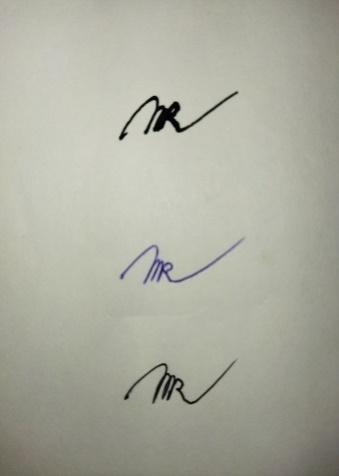 MR
MR
MR